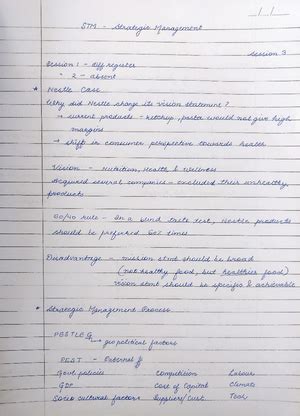 STM - Strategic Management
Session 3
Session 1 - diff register
" 2 - absent
* Nestle Case
Why did Nestle change its vision statement?
→ current products - ketchup, pasta would not give high
margins
→ shift in consumer perspective towards health
Vision - Nutrition, Health & Wellness
Acquired several companies - excluded their unhealthy
products
60/40 rule - In a blind taste test, Nestle products
should be preferred 60% times
Disadvantage - mission stmt should be broad
(not healthy food, but healthier foods)
vision stmt should be specific & achievable
* Strategic Management Process
PESTLEG
↳ geopolitical factors
PEST - External
Govt policies Competition Labour
GDP Cost of Capital Climate
Socio cultural factors Suppliers/Cust. Tech